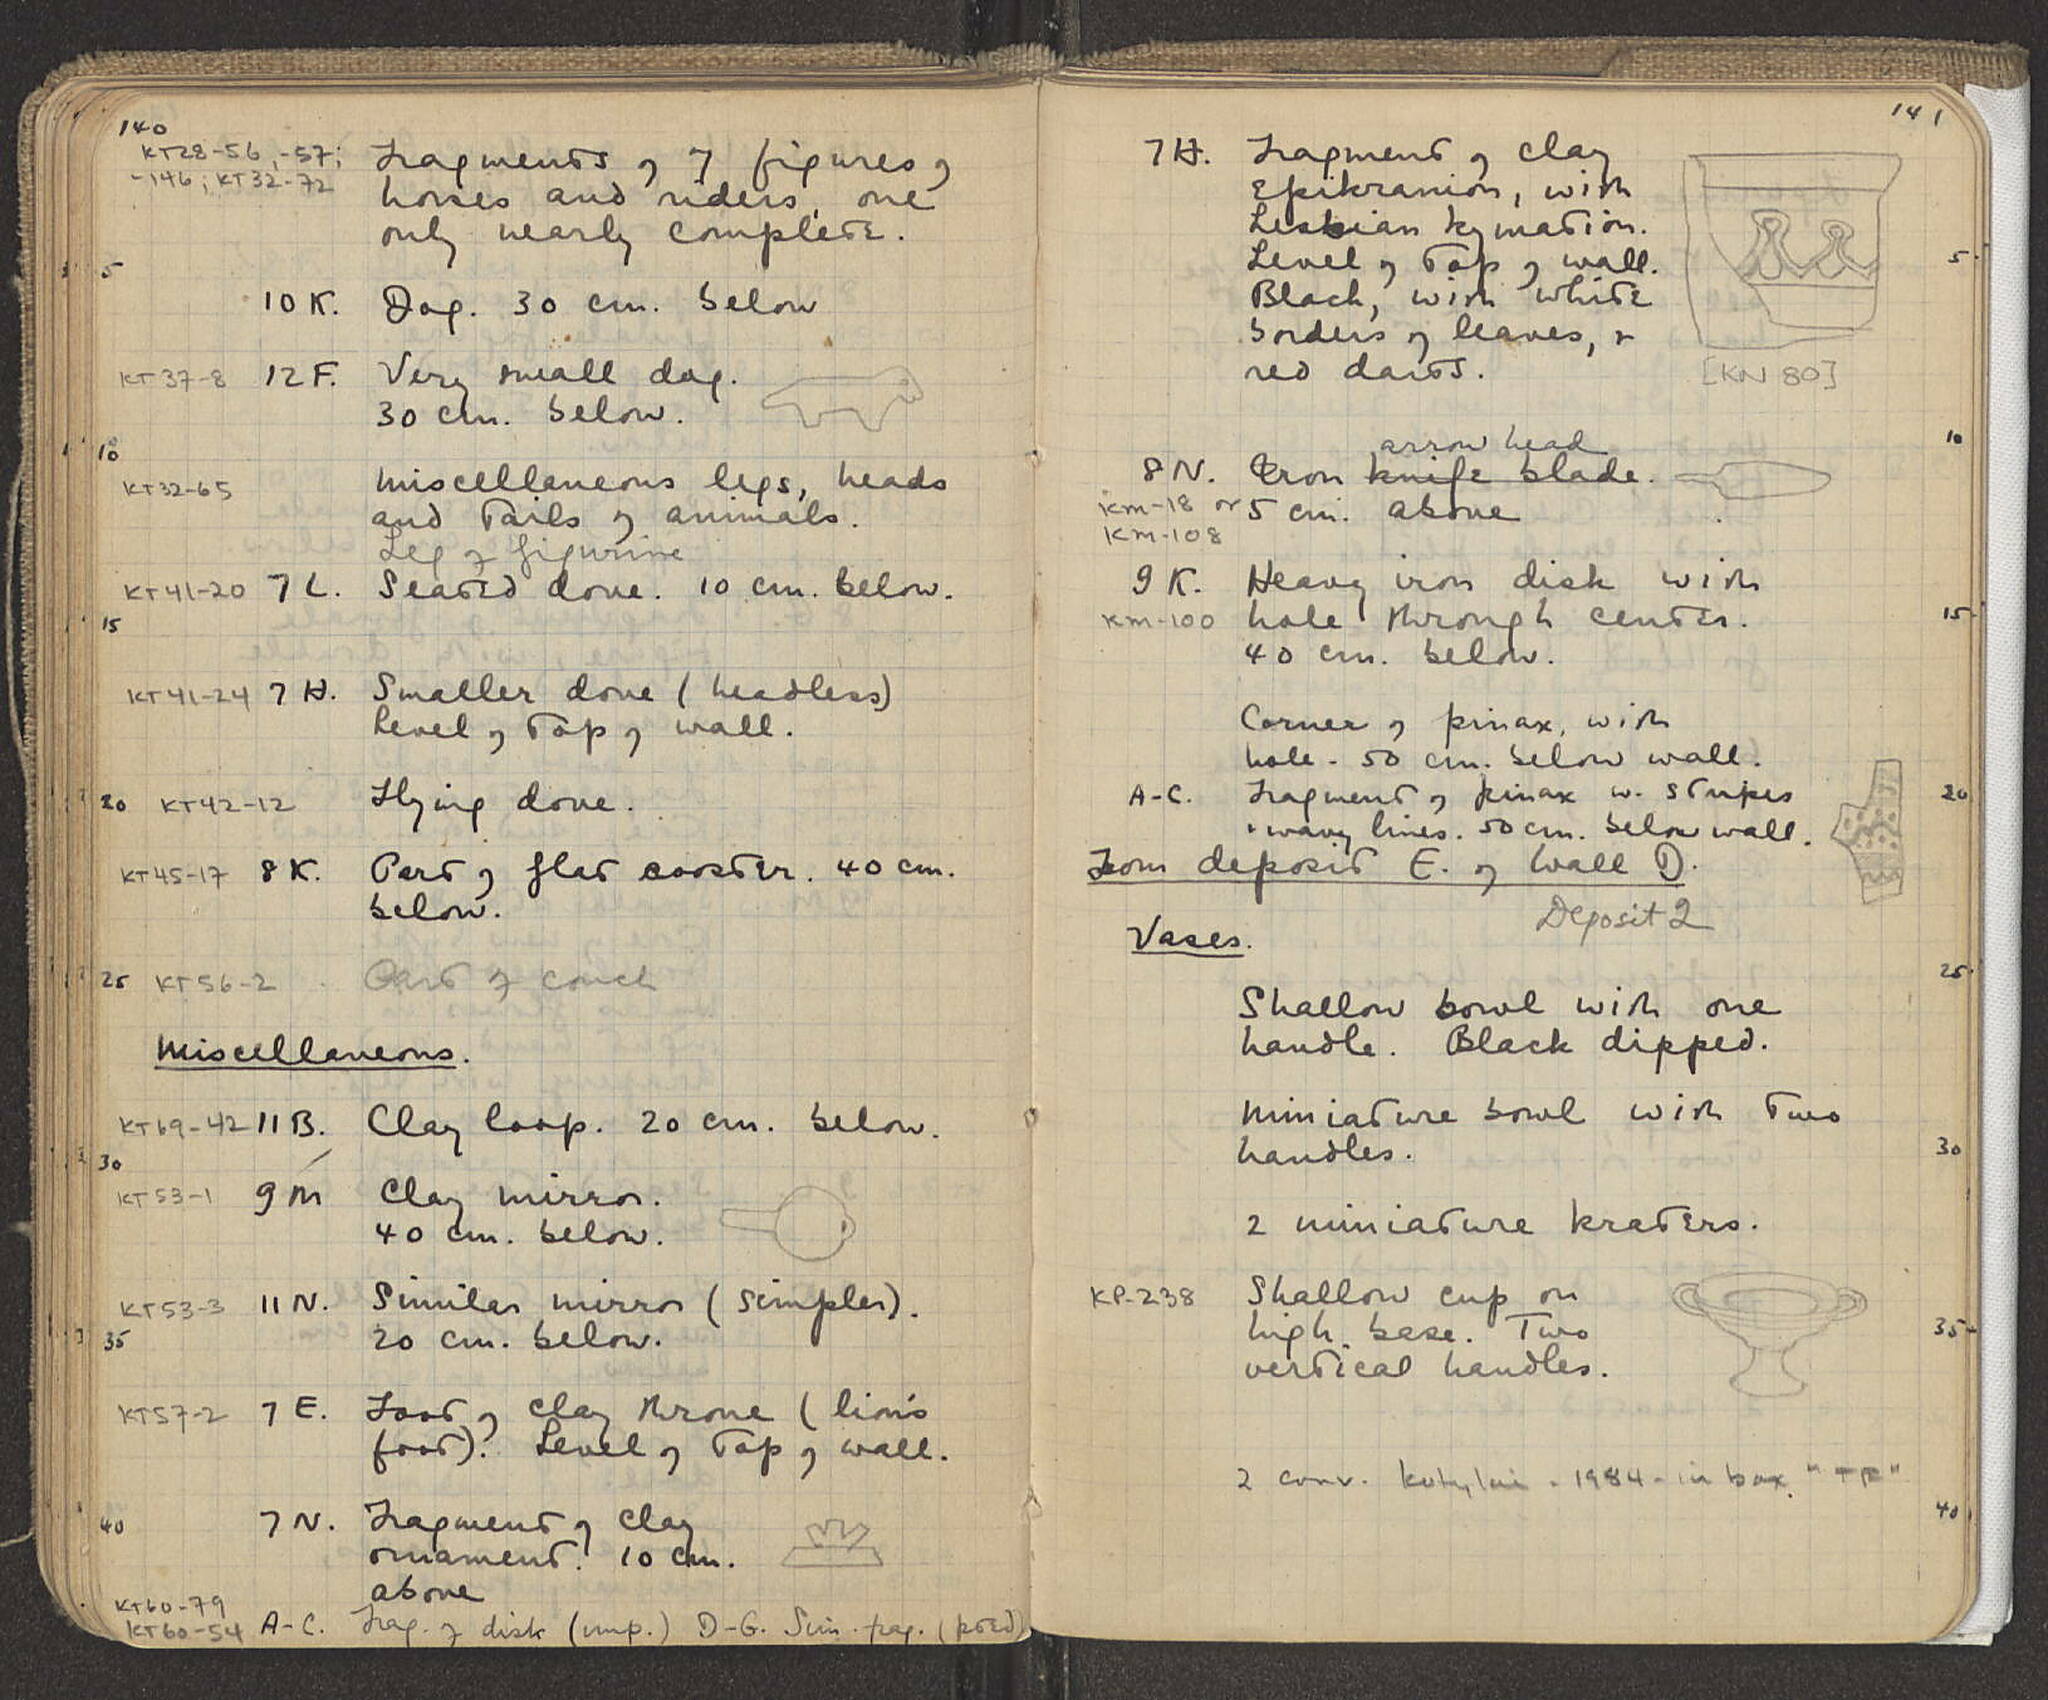 140
KT28-56, -57;
-146; KT32-72
Fragments of 7 figures of
horses and riders, one
only nearly complete.
5
10 K. Dog. 30 cm. below
KT37-8 12 F. Very small dog.
30 cm. below.
10
KT32-65 Miscellaneous legs, heads
and tails of animals.
Leg of figurine
KT41-20 7 L. Seated dove. 10 cm. below.
15
KT41-24 7 H. Smaller dove (headless)
Level of top of wall.
20 KT42-12 Flying dove.
KT45-17 8 K. Part of flat rooster. 40 cm.
below.
25 KT56-2 Part of couch
Miscellaneous.
KT69-42 11 B. Clay loop. 20 cm. below.
30
KT53-1 9 M Clay mirror.
40 cm. below.
KT53-3 11 N. Similar mirror (simpler).
35 20 cm. below.
KT57-2 7 E. Foot of clay throne (lion's
foot). Level of top of wall.
40 7 N. Fragment of clay
ornament. 10 cm.
above
KT60-79
KT60-54 A-C. Frag. of disk (imp.) D-G. Sim. frag. (pted)
141
7 H. Fragment of clay
Epikranion, with
Lesbian kymation.
Level of top of wall. 5
Black, with white
borders of leaves, &
red darts. [KN 80]
10
arrow head
8 N. Iron knife blade.
KM-18 or 5 cm. above
KM-108
9 K. Heavy iron disk with
KM-100 hole through center. 15
40 cm. below.
Corner of pinax, with
hole - 50 cm. below wall.
A-C. Fragment of pinax w. stripes 20
& wavy lines. 50 cm. below wall.
From deposit E. of Wall D.
Deposit 2
Vases.
25
Shallow bowl with one
handle. Black dipped.
Miniature bowl with two
handles. 30
2 miniature kraters.
KP-238 Shallow cup on
high base. Two 35
vertical handles.
2 conv. kotylai - 1984 - in box
40